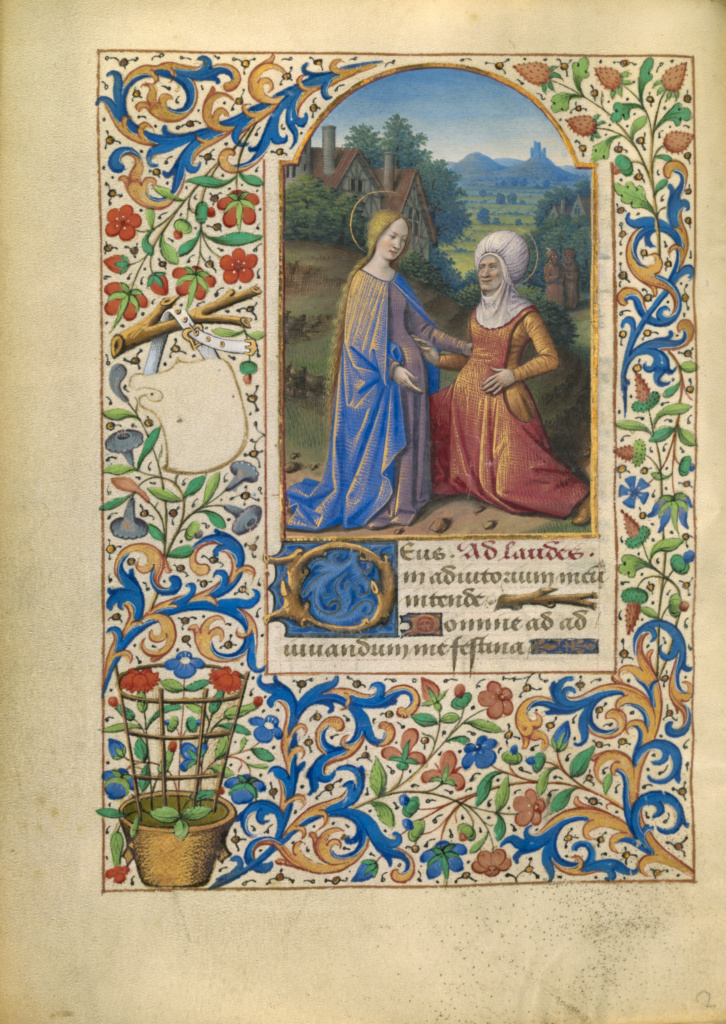 Deus · Ad laudes ·
in adiutorium meū
intende
Domine ad ad
iuuandum me festina
2